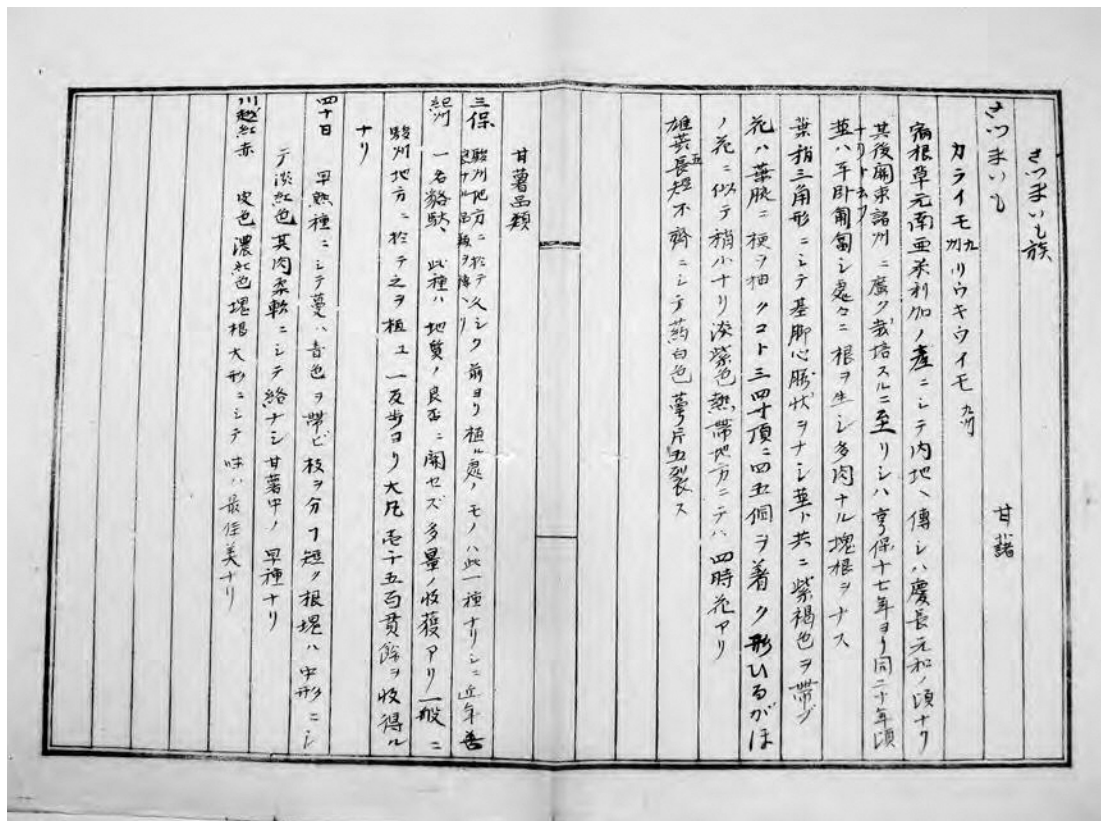 さつまいも族
さつまいも 甘藷
カライモ 九州 リウキウイモ 九州
宿根草元南亜米利加ノ産ニシテ内地ヘ傳シハ慶長元和ノ頃ナリ
其後関東諸州ニ廣ク栽培スルニ至リシハ亨保十七年ヨリ同二十年頃
ナリト云フ
茎ハ平卧匍匐シ處々ニ根ヲ生シ多肉ナル塊根ヲナス
葉稍三角形ニシテ基脚心臓状ヲナシ茎ト共ニ紫褐色ヲ帯ブ
花ハ葉腋ニ梗ヲ抽クコト三四寸頂ニ四五個ヲ着ク形ひるがほ
ノ花ニ似テ稍小ナリ淡紫色熱帯地方ニテハ四時花アリ
雄蕊五長短不齊ニシテ葯白色萼片五裂ス
甘薯品類
三保 駿州地方ニ於テ久シク前ヨリ植ル處ノモノハ此一種ナリシニ近年善
良ナル品種ヲ傳ヘリ
紀州 一名駱駄、此種ハ地質ノ良否ニ関セズ多量ノ收獲アリ一般ニ
駿州地方ニ於テ之ヲ植ユ一反歩ヨリ大凡壱千五百貫餘ヲ收得ル
ナリ
四十日 早熟種ニシテ蔓ハ青色ヲ帯ビ枝ヲ分フ短ク根塊ハ中形ニシ
テ淡紅色其肉柔軟ニシテ絡ナシ甘薯中ノ早種ナリ
川越紅赤 皮色濃紅色塊根大形ニシテ味ハ最佳美ナリ